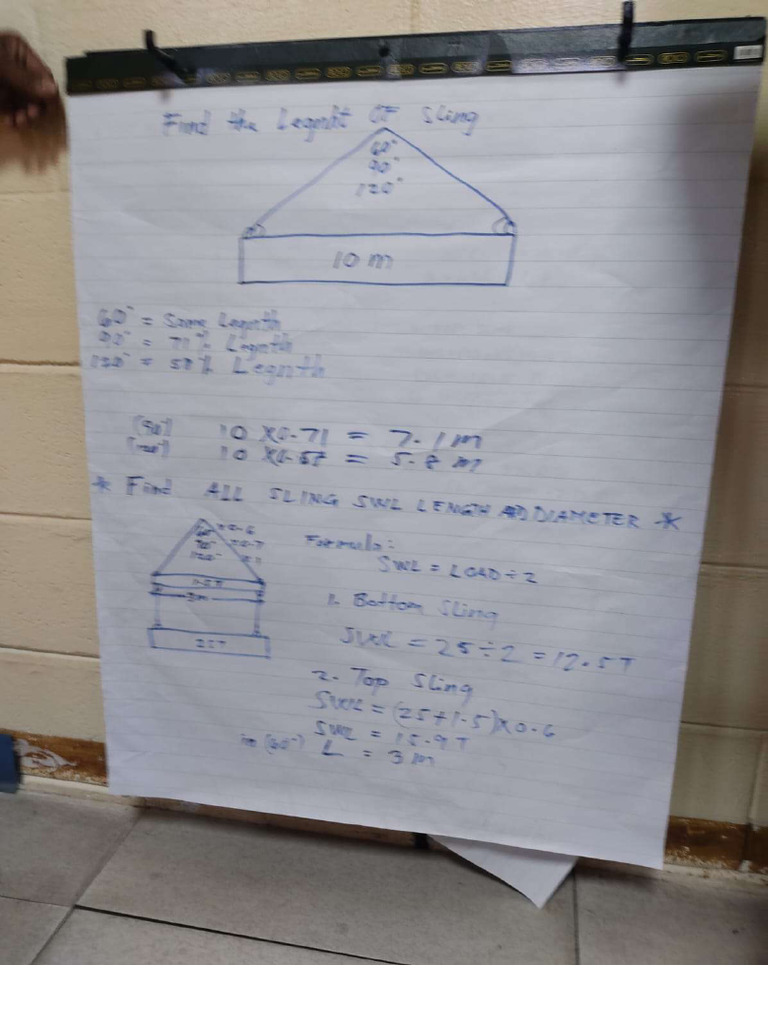 Find the Legnht OF Sling
60°
90°
120°
10 m
60° = Same Legnth
90° = 71% Legnth
120° = 58% Legnth
(90°) 10 x0.71 = 7.1 m
(120°) 10 x0.58 = 5.8 m
* Find ALL SLING SWL LENGTH AND DIAMETER *
60° x 0.6
90° x 0.7
120° x 1
1.5T
3m
25T
Formula:
SWL = LOAD ÷ 2
1. Bottom Sling
SWL = 25 ÷ 2 = 12.5T
2. Top Sling
SWL = (25+1.5)x0.6
SWL = 15.9T
in (60°) L = 3 m